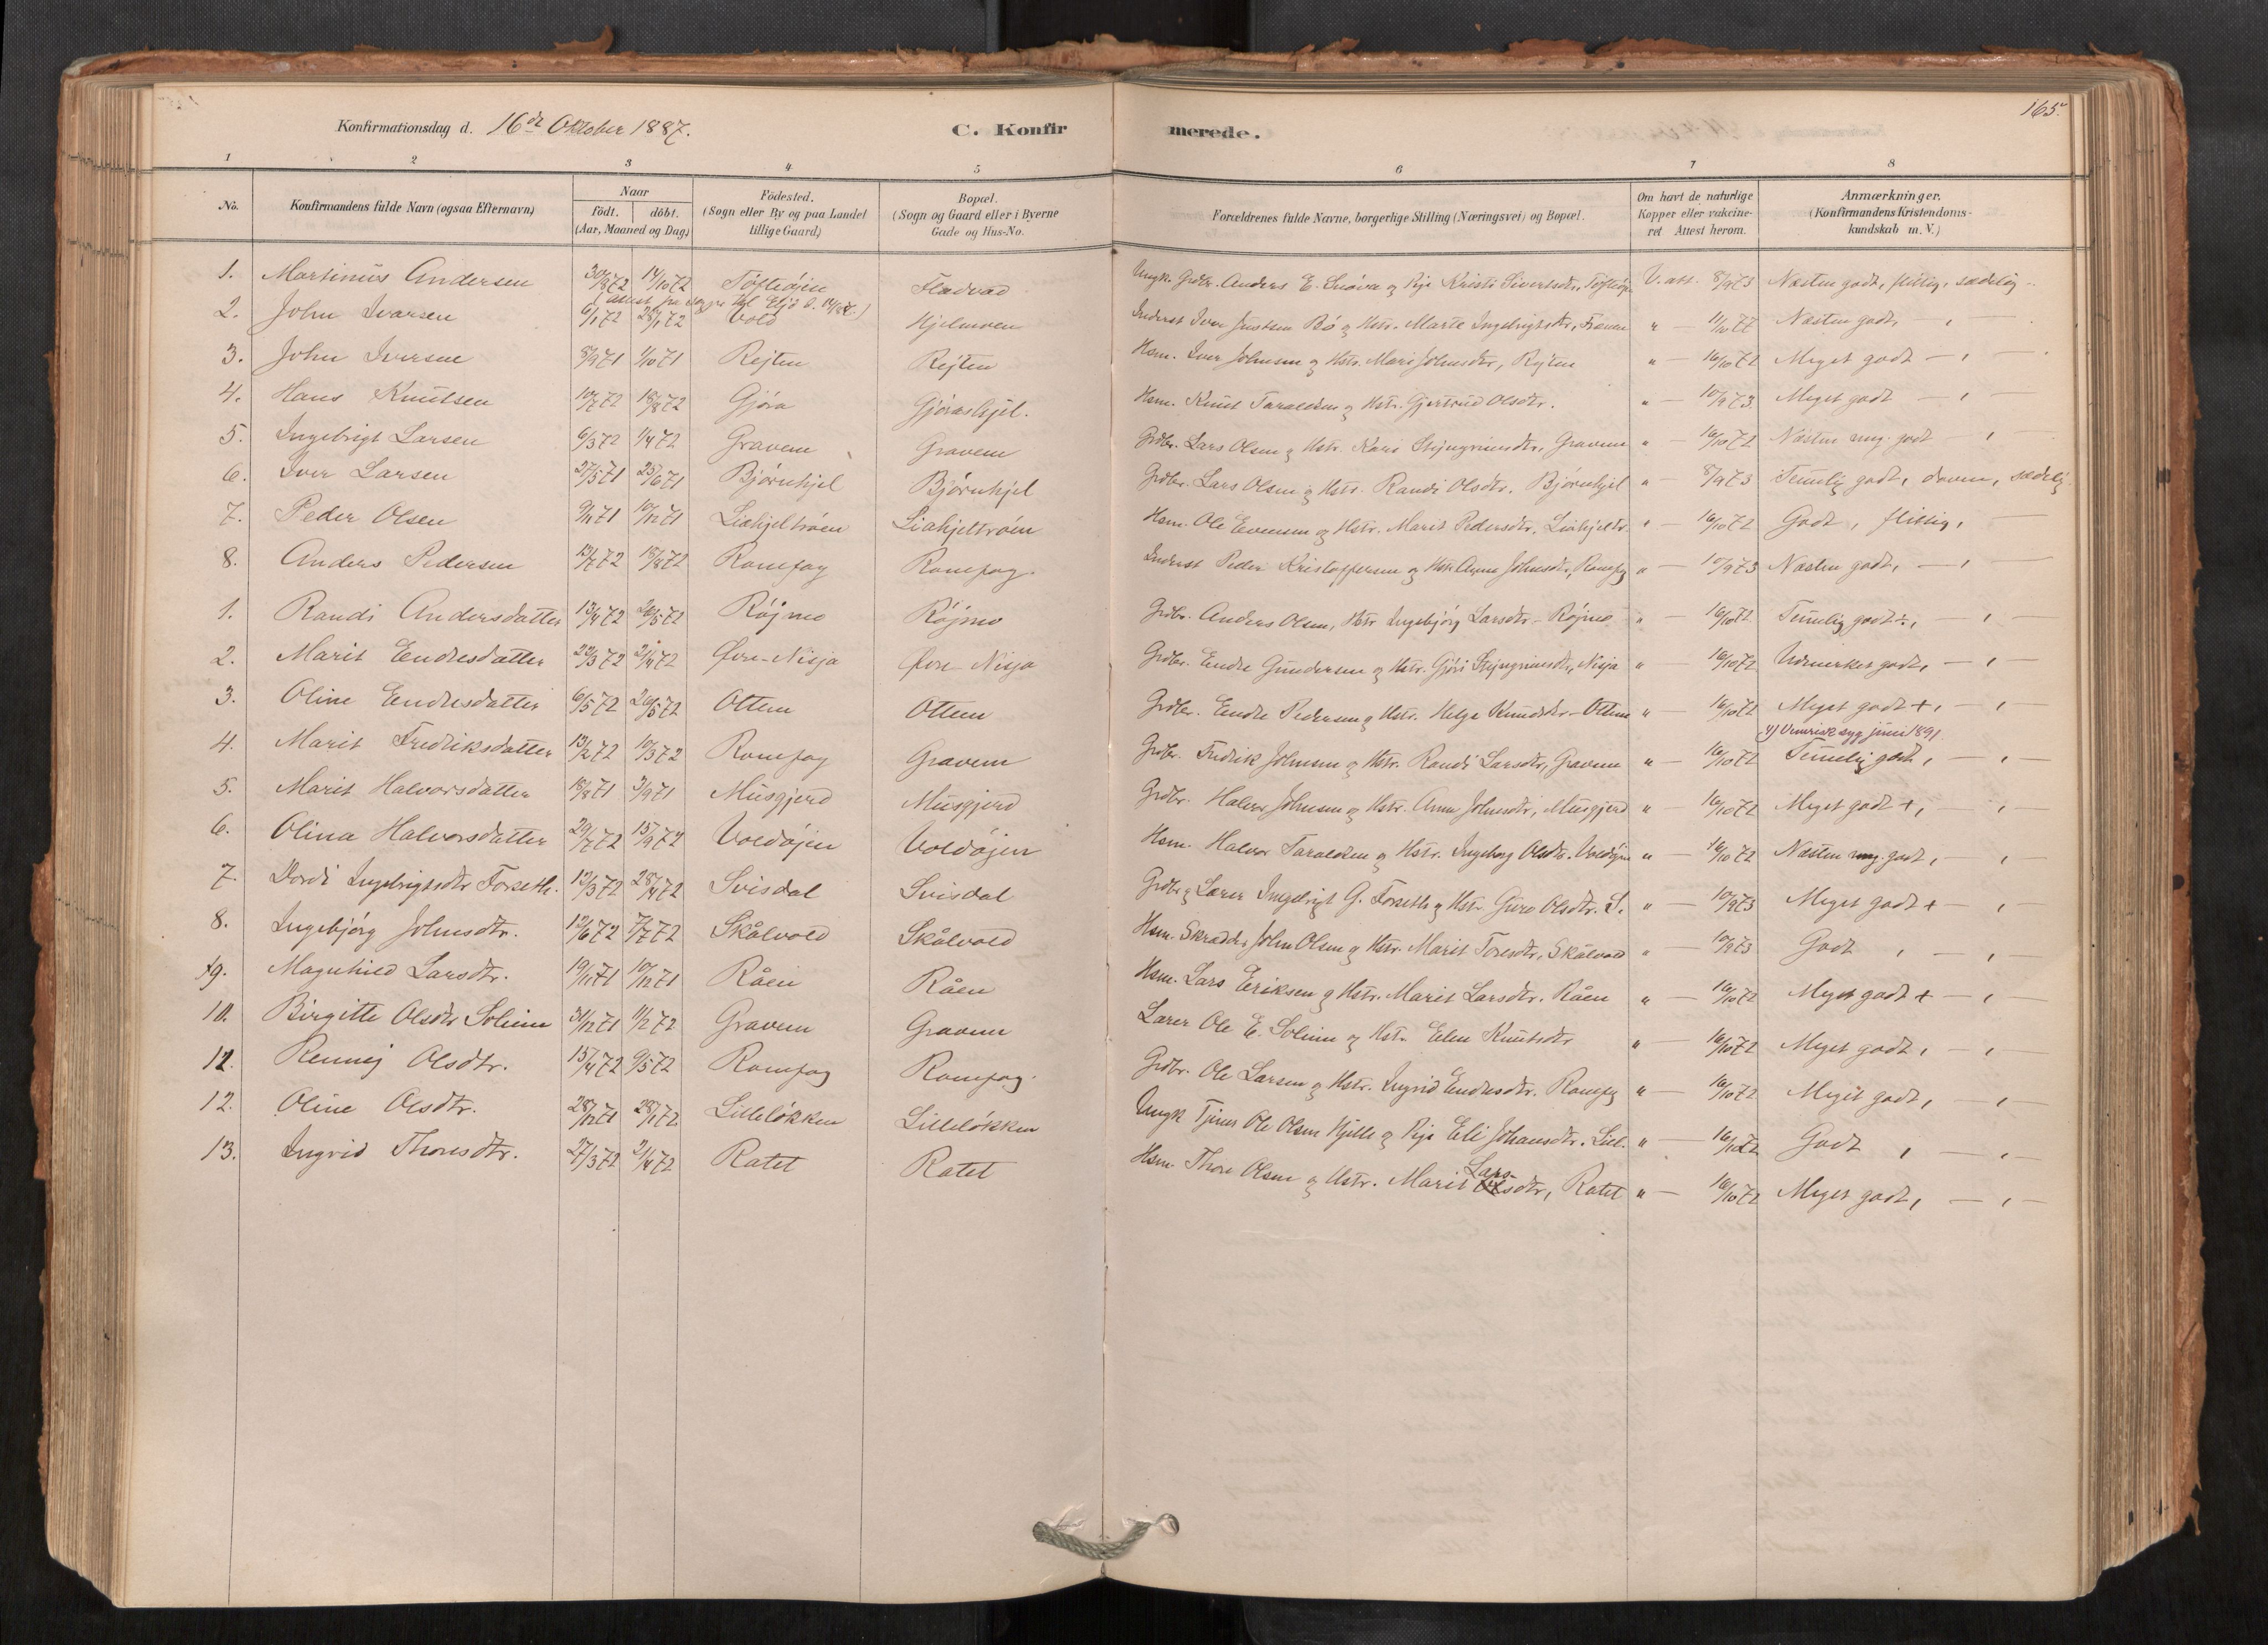 165.
Konfirmationsdag d. 16de Oktober 1887. C. Konfir merede.
1 2 3 4 5 6 7 8
No. Konfirmandens fulde Navn (ogsaa Efternavn) Naar födt. döbt. (Aar, Maaned og Dag) Födested. (Sogn eller By og paa Landet tillige Gaard) Bopæl. (Sogn og Gaard eller i Byerne Gade og Hus-No. Forældrenes fulde Navne, borgerlige Stilling (Næringsvei) og Bopæl. Om havt de naturlige Kopper eller vakcineret Attest herom. Anmærkninger. (Konfirmandens Kristendomskundskab m. V.)
1. Martinus Andersen 30/8 72 14/10 72 Töftöjen Fladvad Ungk. Grdbr. Anders E. og Pige Kristi Sivertsdtr., V. att. 8/9 73 Næsten godt, flittig, sædelig
2. John Ivarsen 6/1 72 28/1 72 Vold Hjelmoen Inderst Iver Justsen Bö og Hstr. Marte Ingebrigtsdtr, " — 11/10 77 Næsten godt, — , —
3. John Iversen 8/9 71 1/10 71 Rejten Rejten Hsm. Iver Johnsen og Hstr. Mari Johnsdtr, Rejten " — 16/10 72 Meget godt — , —
4. Hans Knutsen 10/7 72 18/8 72 Gjöra Gjörashjel. Hsm. Knut Taraldsen og Hstr. Gjertrud Olsdtr. " — 10/9 73 Meget godt — , —
5. Ingebrigt Larsen 6/3 72 1/4 72 Gravem Gravem Grdbr. Lars Olsen og Hstr. Kari Stejngrimsdtr, Gravem " — 16/10 72 Næsten mg. godt , —
6. Iver Larsen 27/5 71 25/6 71 Björnhjel Björnhjel Grdbr. Lars Olsen og Hstr. Randi Olsdtr. Björnhjel " — 8/9 73 Temelig godt, doven, sædelig.
7. Peder Olsen 9/11 71 10/12 71 Liahjeltröen Liahjeltröen Hsm. Ole Evensen og Hstr. Marit Pedersdtr. Liahjeltr. " — 16/10 72 Godt, flittig, —
8. Anders Pedersen 13/7 72 18/8 72 Romfog Romfog. Inderst Peder Kristoffersen og Hstr. Anne Johnsdtr, Romfog " — 10/9 73 Næsten godt, — , —
1. Randi Andersdatter 13/4 72 26/5 72 Röjmo Röjmo Grdbr. Anders Olsen, Hstr Ingebjörg Larsdtr - Röjmo " — 16/10 72 Temelig godt ÷, — , —
2. Marit Endresdatter 22/3 72 21/4 72 Övre-Nisja Övre-Nisja Grdbr. Endre Gundersen og Hstr. Gjöri Stejngrimsdtr, Nisja " — 16/10 72 Udmerket godt, — , —
3. Oline Endresdatter 6/5 72 26/5 72 Ottem Ottem Grdbr. Endre Pedersen og Hstr. Helga Knudsdtr - Ottem " — 16/10 72 Meget godt +, — ,
4) Venerisk syg juni 1891
4. Marit Fredriksdatter 13/2 72 10/3 72 Romfog Gravem Grdbr. Fredrik Johnsen og Hstr. Randi Larsdtr, Gravem " — 16/10 72 Temelig godt, — , —
5. Marit Halvorsdatter 18/8 71 3/9 71 Musgjerd Musgjerd Grdbr. Halvor Johnsen og Hstr. Anne Johnsdtr, Musgjerd " — 16/10 72 Meget godt +, — ,
6. Olina Halvorsdatter 29/7 72 15/9 72 Voldöjen Voldöjen Hsm. Halvor Taraldsen og Hstr. Ingeborg Olsdtr. Voldöjen " — 16/10 72 Næsten mg. godt, — ,
7. Dordi Ingebrigtsdtr Forseth. 12/3 72 28/4 72 Svisdal Svisdal Grdbr og Lærer Ingebrigt G. Forseth og Hstr. Guro Olsdtr. S. " — 10/9 73 Meget godt + — ,
8. Ingebjörg Johnsdtr. 12/6 72 7/7 72 Skålvold Skålvold Hsm. Skrædder John Olsen og Hstr. Marit Toresdtr, Skålvold " — 10/9 73 Godt , — , —
9. Magnhild Larsdtr. 19/11 71 10/12 71 Råen Råen Hsm. Lars Eriksen og Hstr. Marit Larsdtr. Råen " — 16/10 72 Meget godt + — , —
10. Birgitte Olsdtr Solem 31/12 71 11/2 72 Gravem Gravem Lærer Ole E. Solem og Hstr. Elen Knutsdtr " — 16/10 72 Meget godt, — , —
11. Rennej Olsdtr. 15/4 72 9/5 72 Romfog Romfog. Grdbr. Ole Larsen og Hstr. Ingrid Endresdtr. Romfog " — 16/10 72 Meget godt, — , —
12. Oline Olsdtr. 28/12 71 28/1 72 Lillelökken Lillelökken Ungk Tjener Ole Olsen Hjelle og Pige Eli Johansdtr. Lill. " — 16/10 72 Godt , — , —
13. Ingrid Thoresdtr. 27/3 72 21/4 72 Ratet Ratet Hsm. Thore Olsen og Hstr. Marit Larsdtr, Ratet " — 16/10 72 Meget godt, — , —